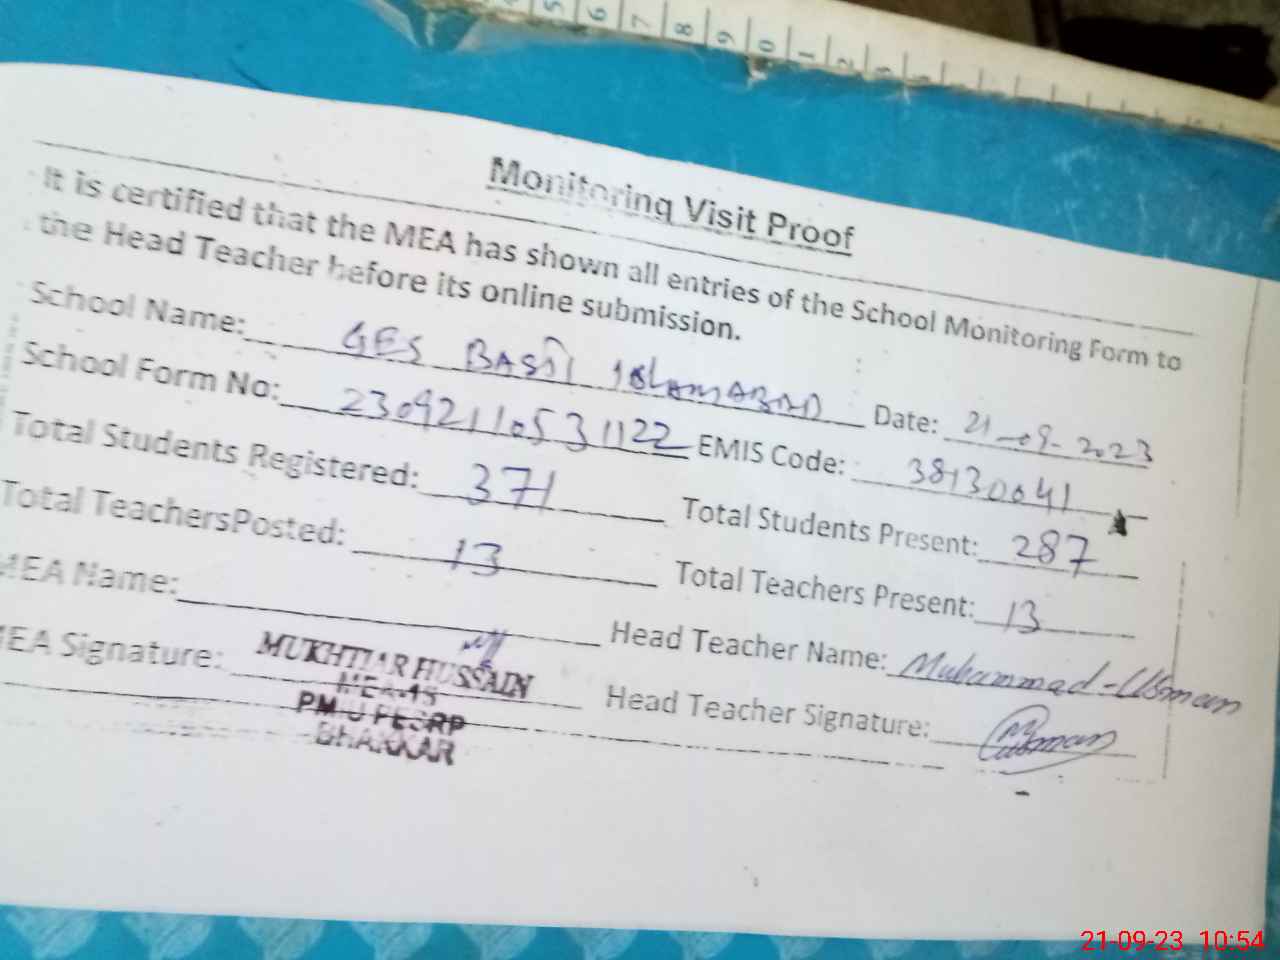 5 6 7 8 9 0 1 2
Monitoring Visit Proof
It is certified that the MEA has shown all entries of the School Monitoring Form to
the Head Teacher before its online submission.
School Name: GES BASTI ISLAMABAD Date: 21-09-2023
School Form No: 23092110531122 EMIS Code: 38130041
Total Students Registered: 371 Total Students Present: 287
Total TeachersPosted: 13 Total Teachers Present: 13
MEA Name: Head Teacher Name: Muhammad-Usman
MEA Signature: MUKHTIAR HUSSAIN Head Teacher Signature: Usman
PMIU PESRP
BHAKKAR
21-09-23 10:54